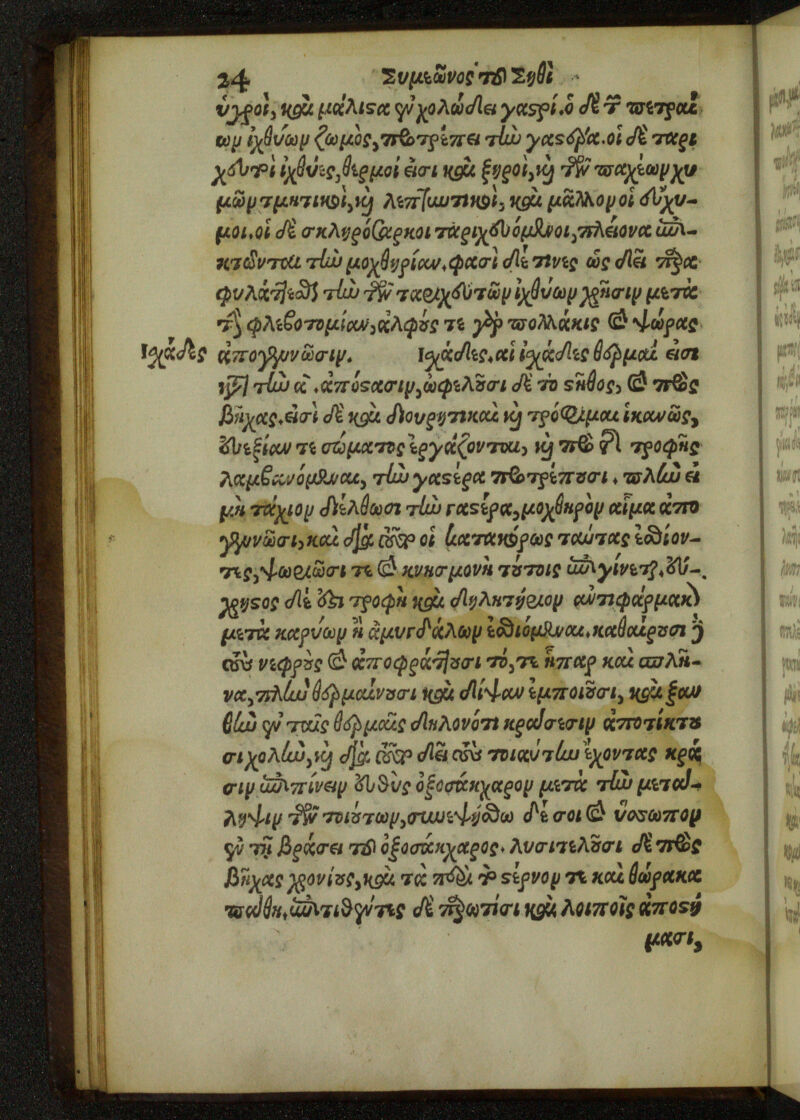 24 Συμεῶνος τοῦ Σηθὶ
ὑγροί, καὶ μάλιστα ἐν χολώδει γαστρί. ὁ δὲ τῶν πετραί
ων ἰχθύων ζωμὸς, προτρέπει τὴν γαστέρα. οἱ δὲ ταρι
χευτοὶ ἰχθύες, θερμοί εἰσι καὶ ξηροί, καὶ τῶν παχέων χυ
μῶν τμητικοὶ, καὶ λεπτυντικοὶ, καὶ μᾶλλον οἱ εὔχυ-
μοι. οἱ δὲ σκληρόσαρκοι ταριχευόμενοι, πλείονα ἐπι-
κτῶνται τὴν μοχθηρίαν. φασὶ δέ τινες ὡς δεῖ παρα
φυλάττεσθαι τὴν τῶν ταριχευτῶν ἰχθύων χρῆσιν μετὰ
τὴν φλεβοτομίαν, ἀλφούς τε γὰρ πολλάκις καὶ ψώρας
Ἰχάδες ἀπογεννῶσιν. Ἰχάδες. αἱ ἰχάδες θερμαί εἰσι
κατὰ τὴν α. ἀπόστασιν, ὠφελοῦσι δὲ τὸ στῆθος, καὶ πρὸς
βῆχας. εἰσὶ δὲ καὶ διουρητικαὶ καὶ τρόφιμαι ἱκανῶς,
εὐεξίαν τε σώματος ἐργάζονται, καὶ πρὸ τῆς τροφῆς
λαμβανόμεναι, τὴν γαστέρα προτρέπουσι. πλὴν εἰ
μὴ τάχιον διέλθωσι τὴν γαστέρα, μοχθηρὸν αἷμα ἀπο
γεννῶσι, καὶ διὰ τοῦτο οἱ κατακόρως ταύτας ἐσθίον-
τες, ψωριῶσί τε καὶ κνησμονὴ τούτοις ἐπιγίνεται. εὔ-
χρηστος δέ ἐστι τροφὴ καὶ δηλητήριον ἀντιφάρμακον
μετὰ καρύων ἢ ἀμυγδάλων ἐσθιόμεναι. καθαίρουσι δὲ
τοὺς νεφροὺς καὶ ἀποφράττουσι τό, τε ἧπαρ καὶ σπλῆ-
να, πλὴν θερμαίνουσι καὶ δίψαν ἐμποιοῦσι, καὶ ξαν
θὴν ἐν ταῖς θερμαῖς δηλονότι κράσεσιν ἀποτίκτου
σι χολὴν, καὶ διὰ τοῦτο δεῖ τοὺς τοιαύτην ἔχοντας κρᾶ
σιν ἐπιπίνειν εὐθὺς ὀξοσάκχαρον μετὰ τὴν μετά-
ληψιν τῶν τοιούτων, συνεψήσθω δέ σοι καὶ ὕσσωπον
ἐν τῇ βράσει τοῦ ὀξοσάκχαρος. λυσιτελοῦσι δὲ πρὸς
βῆχας χρονίους, καὶ τὰ περὶ τὸ στέρνον τε καὶ θώρακα
πάθη. ἐπιτιθέντες δὲ παρωτίσι καὶ λοιποῖς ἀποστή
μασι,